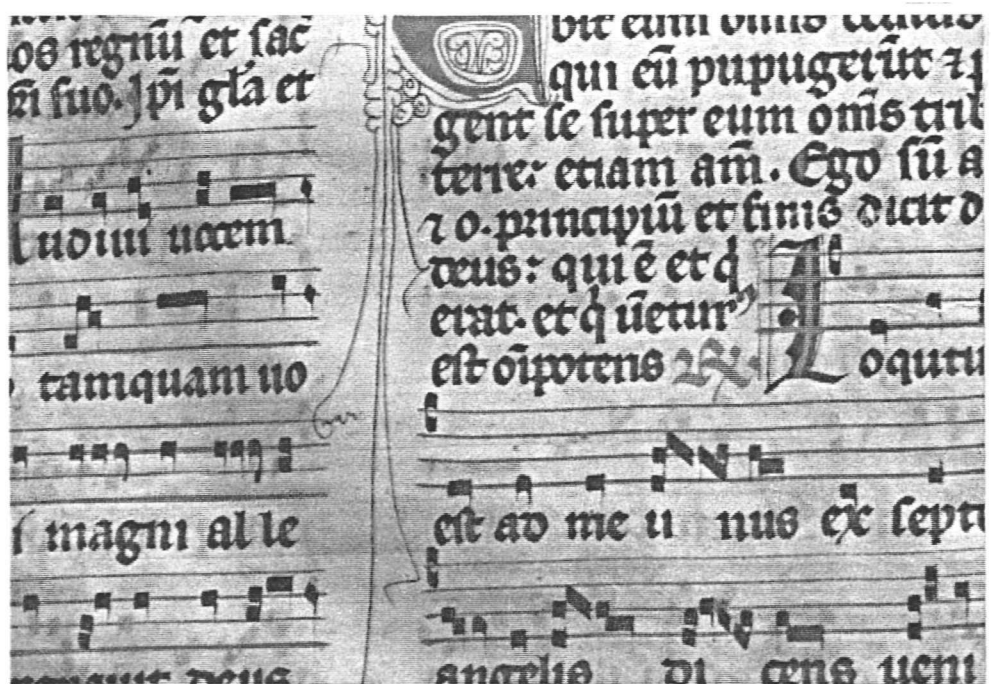 os regnū et sac
suo. Ipī gl̄a et
udiui uocem
tamquam uo
magni al le
deus
bit eum
qui eū pupugerūt ⁊
gent se super eum om̄s trib
terre: etiam am̄. Ego sū a
⁊ o. principiū et finis dicit d
deus: qui ē et q̇
erat. et q̇ uētur᾽
est oīpotens
L oqutu
est ad me u nus ex septe
angelis di cens ueni